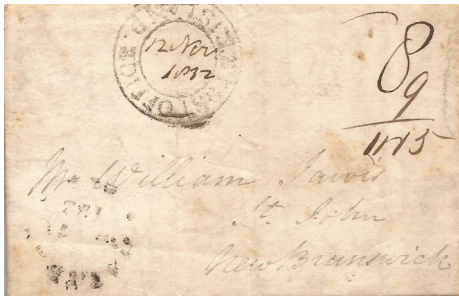 POST OFFICE P.E. ISLAND
12 Nov
1832
8
9
1/5
Mr William Jarvis
St. John
New Brunswick